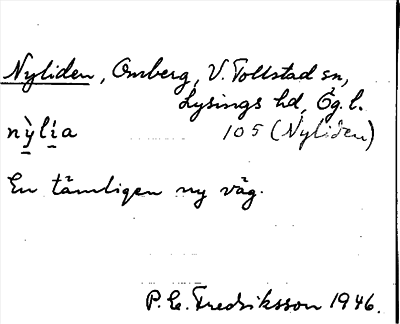 Nyliden, Omberg, V. Tollstad sn,
Lysings hd, Ög.l.
nỳlía 105 (Nyliden)
En tämligen ny väg.
P. E. Fredriksson 1946.